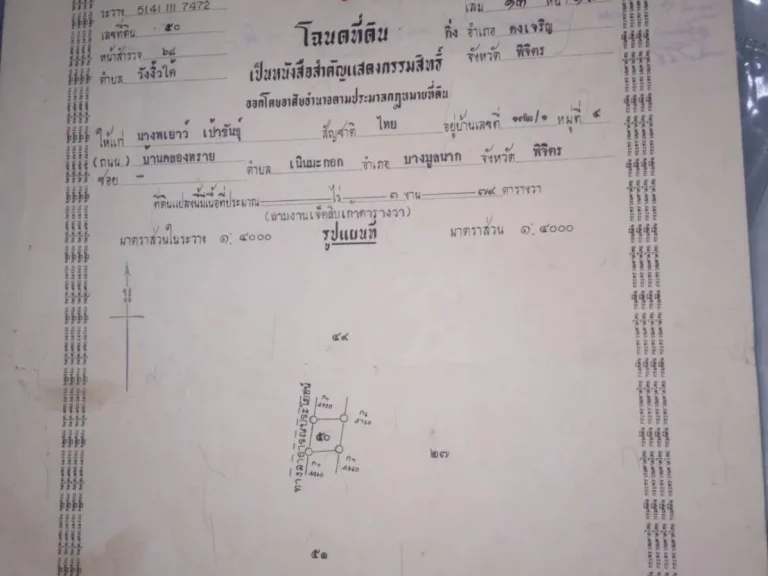 ระวาง 5141 III 7472
เลขที่ดิน ๕๐
หน้าสำรวจ ๖๘
ตำบล วังงิ้วใต้
โฉนดที่ดิน
เป็นหนังสือสำคัญแสดงกรรมสิทธิ์
ออกโดยอาศัยอำนาจตามประมวลกฎหมายที่ดิน
เล่ม ๑๓ หน้า
กิ่ง อำเภอ ดงเจริญ
จังหวัด พิจิตร
ให้แก่ นางพเยาว์ เป้าขันธุ์ สัญชาติ ไทย อยู่บ้านเลขที่ หมู่ที่ ๔
(ถนน) บ้านคลองทราย ตำบล เนินมะกอก อำเภอ บางมูลนาก จังหวัด พิจิตร
ซอย –
ที่ดินแปลงนี้มีเนื้อที่ประมาณ — ไร่ ๓ งาน ๗๙ ตารางวา
(สามงานเจ็ดสิบเก้าตารางวา)
มาตราส่วนในระวาง ๑: ๔๐๐๐ รูปแผนที่ มาตราส่วน ๑: ๔๐๐๐
น
๔๙
ทางลำลองสาธารณประโยชน์
๕๐
๒๗
๕๑